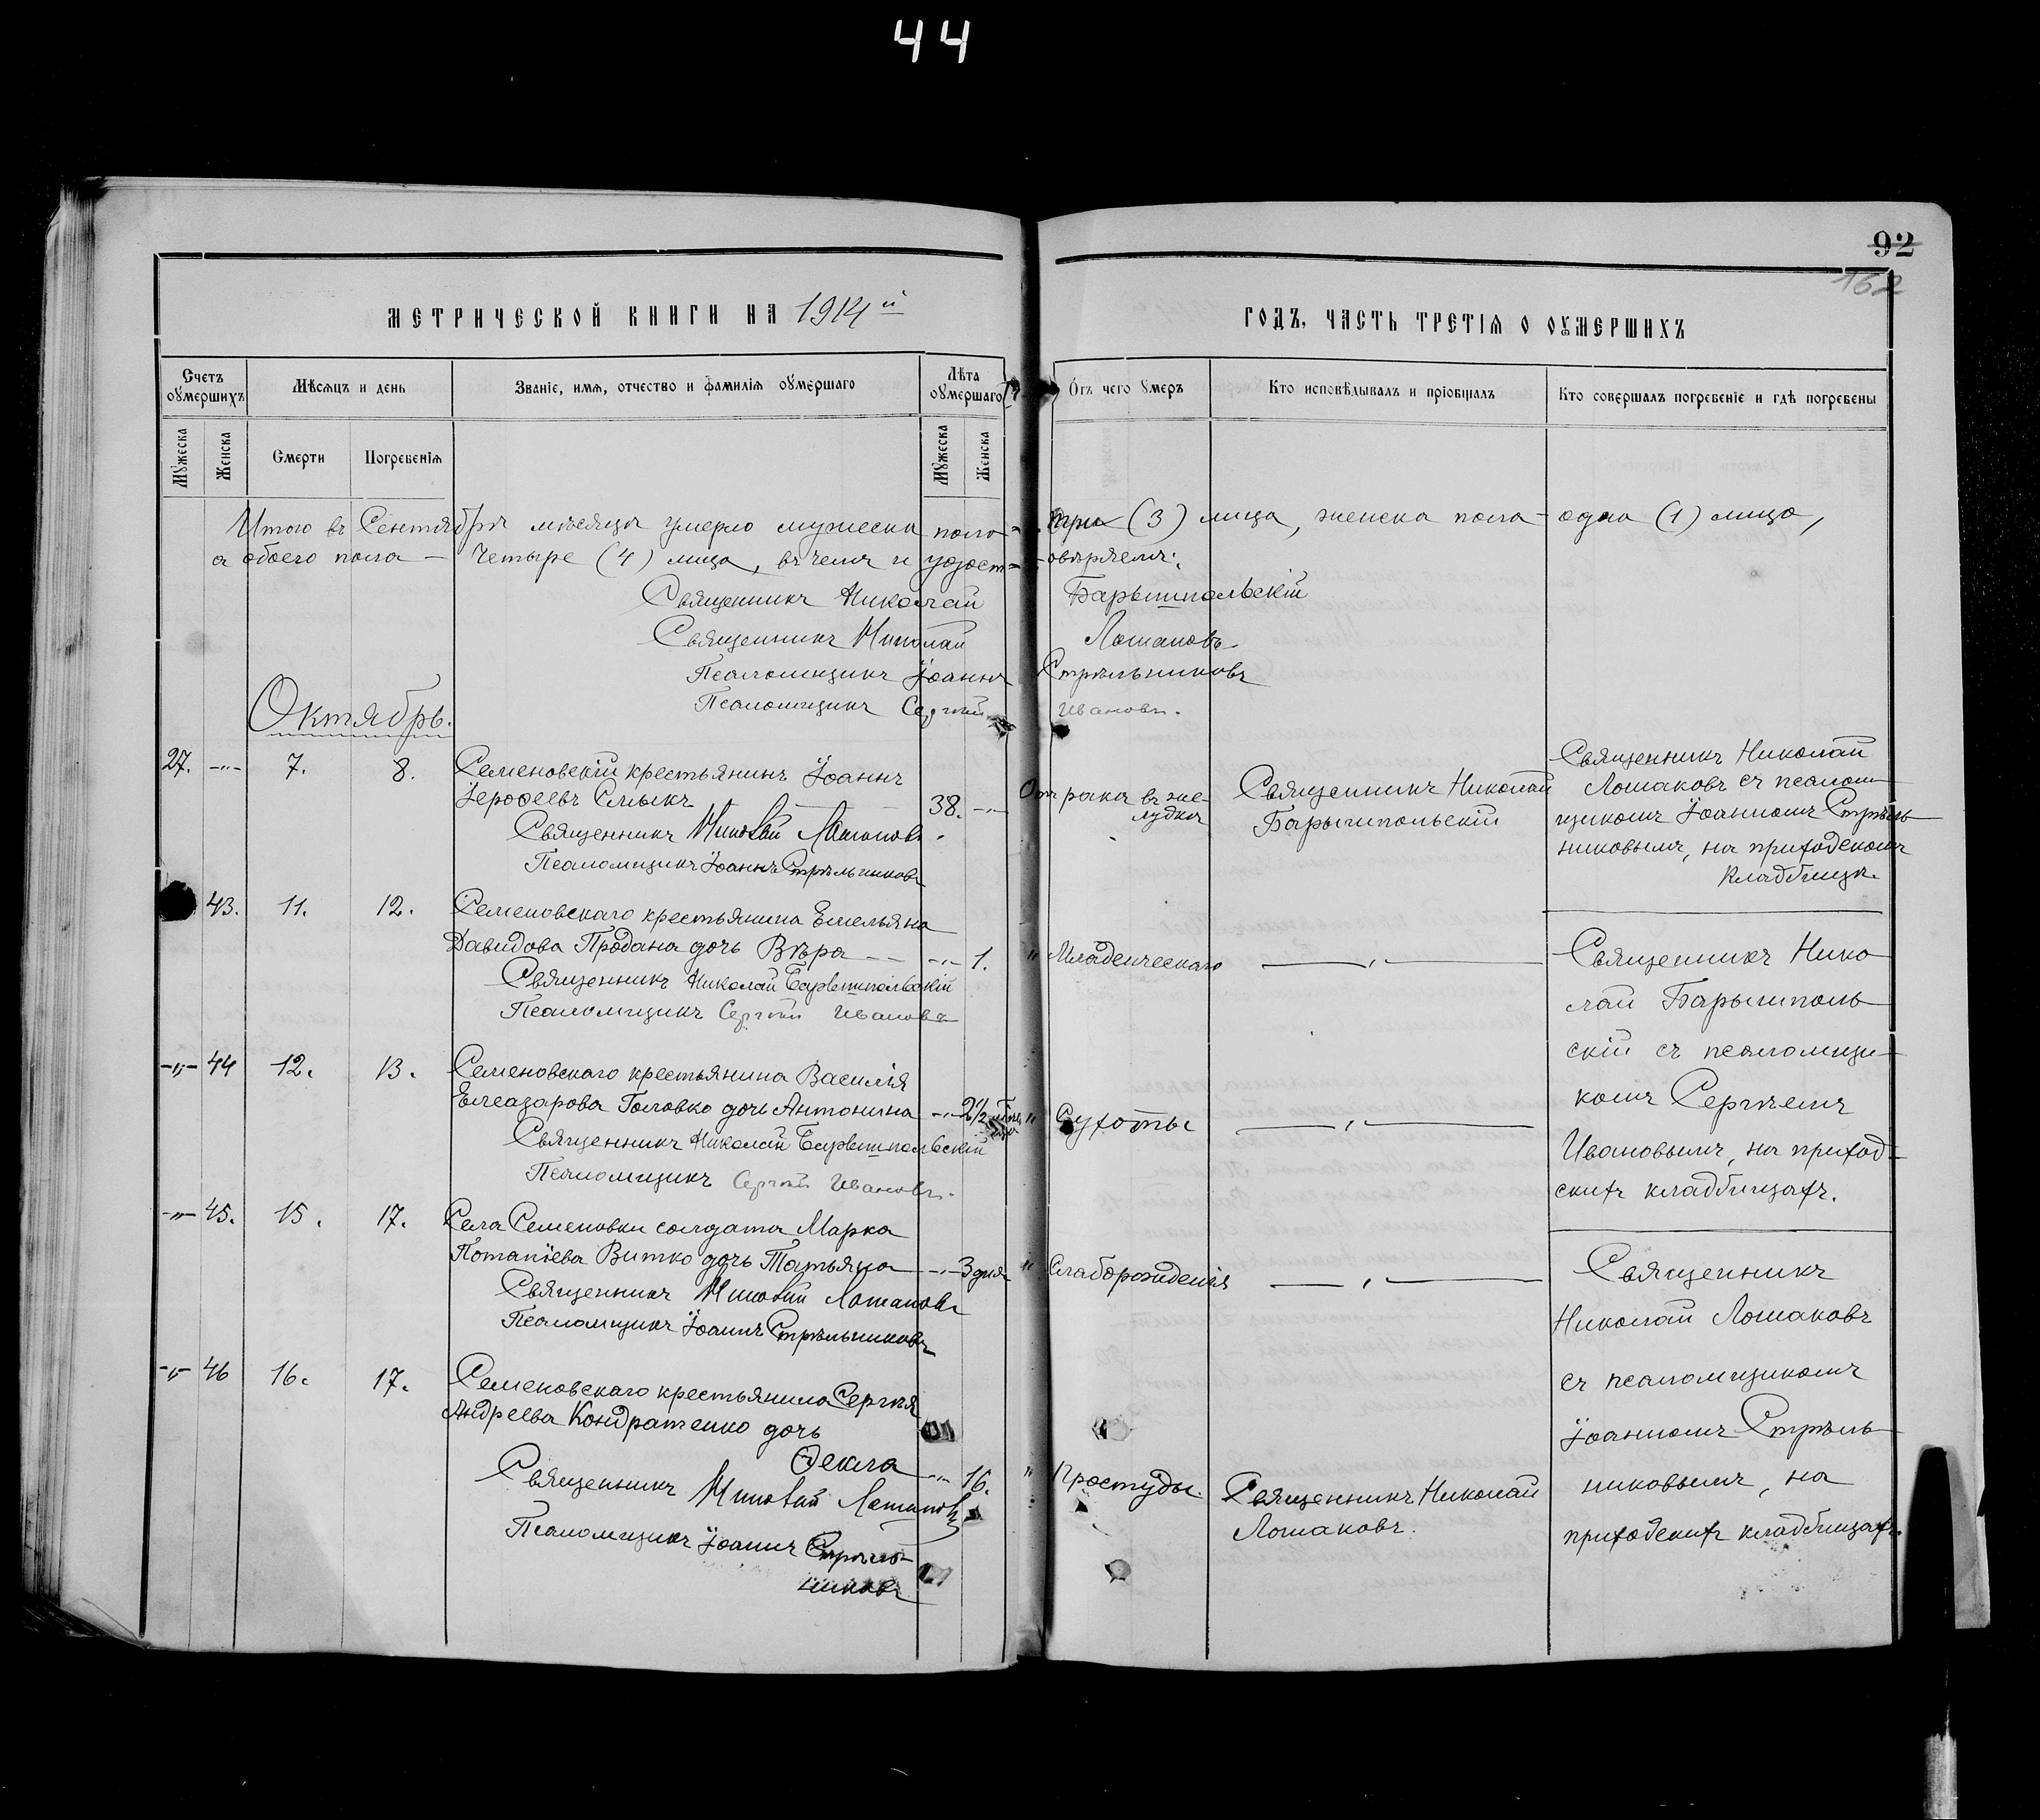 44
92
162
МЕТРИЧЕСКОЙ КНИГИ НА 1914й ГОДЪ, ЧАСТЬ ТРЕТІѦ О ОУМЕРШИХЪ
Счетъ оумершихъ
Мѣсѧцъ и день
Званіе, имѧ, отчество и фамиліѧ оумершаго
Лѣта оумершаго
Отъ чего оумеръ
Кто исповѣдывалъ и пріобщалъ
Кто совершалъ погребеніе и гдѣ погребены
Мужеска
Женска
Смерти
Погребеніѧ
Мужеска
Женска
Итого въ Сентябрѣ мѣсяцѣ умерло мужеска пола - три (3) лица, женска пола - одно (1) лицо,
а обоего пола - четыре (4) лица, въ чемъ и удост-овѣряемъ:
Священникъ Николай Барышпольскій
Священникъ Николай Лошаковъ
Псаломщикъ Іоаннъ Стрѣльниковъ
Псаломщикъ Сергій Ивановъ.
Октябрь.
27. -"- 7. 8. Семеновскій крестьянинъ Іоаннъ
Іерофеевъ Смыкъ 38. -"-
Священникъ Николай Лошаковъ.
Псаломщикъ Іоаннъ Стрѣльниковъ
Отъ рака въ же-
лудкѣ
Священникъ Николай
Барышпольскій
Священникъ Николай
Лошаковъ съ псалом-
щикомъ Іоанномъ Стрѣль-
никовымъ, на приходскомъ
кладбищѣ.
43. 11. 12. Семеновскаго крестьянина Емельяна
Давидова Продана дочь Вѣра -"- 1. " Младенческаго
Священникъ Николай Барышпольскій
Псаломщикъ Сергій Ивановъ
Священникъ Нико-
лай Барышполь-
скій съ псаломщи-
комъ Сергѣемъ
Ивановымъ, на приход-
скихъ кладбищахъ.
-"- 44 12. 13. Семеновскаго крестьянина Василія
Елеазарова Головко дочь Антонина -"- 2½ " Сухоты
Священникъ Николай Барышпольскій
Псаломщикъ Сергій Ивановъ.
-"- 45. 15. 17. Села Семеновки солдата Марка
Потапіева Витко дочь Татьяна -"- 3 дня " Слаборожденія
Священникъ Николай Лошаковъ
Псаломщикъ Іоаннъ Стрѣльниковъ
Священникъ
Николай Лошаковъ
съ псаломщикомъ
Іоанномъ Стрѣль-
никовымъ, на
приходскихъ кладбищахъ.
-"- 46 16. 17. Семеновскаго крестьянина Сергѣя
Андреева Кондратенко дочь
Ѳекла -"- 16. " Простуды.
Священникъ Николай Лошаковъ
Псаломщикъ Іоаннъ Стрѣль-
никовъ
Священникъ Николай
Лошаковъ.